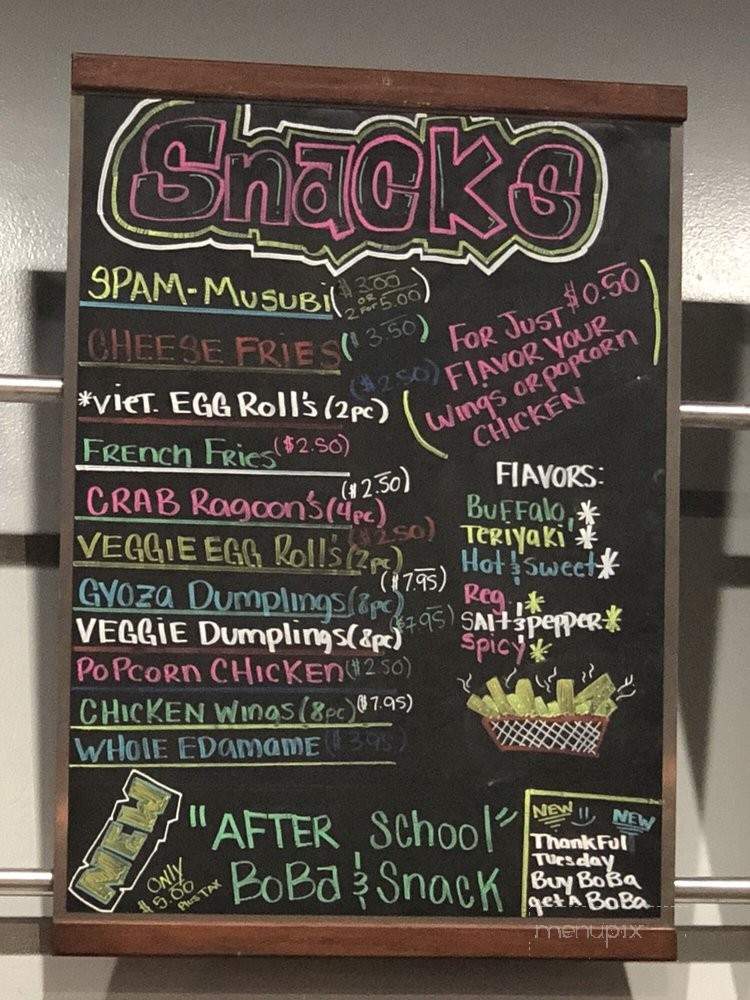 Snacks
SPAM-MUSUBI ($3.00
OR
2 FOR 5.00)
CHEESE FRIES ($3.50)
*VIET. EGG Roll's (2pc) ($2.50)
FRENCH FRIES ($2.50)
CRAB Ragoon's (4pc) ($2.50)
VEGGIE EGG Roll's (2pc) ($2.50)
GYOZA Dumplings (8pc) ($7.95)
VEGGIE Dumplings (8pc) ($7.95)
POPCORN CHICKEN ($2.50)
CHICKEN Wings (8pc) ($7.95)
WHOLE EDAMAME ($3.95)
(FOR JUST $0.50
FLAVOR YOUR
Wings OR popcorn
CHICKEN)
FLAVORS:
BUFFALO, *
TERIYAKI *
Hot & Sweet *
Reg. *
SAlt & pepper *
Spicy *
NEW
ONLY
$5.00
PLUS TAX
"AFTER School"
BoBa & Snack
NEW NEW
ThankFul
Tuesday
Buy BoBa
get A BoBa
menupix